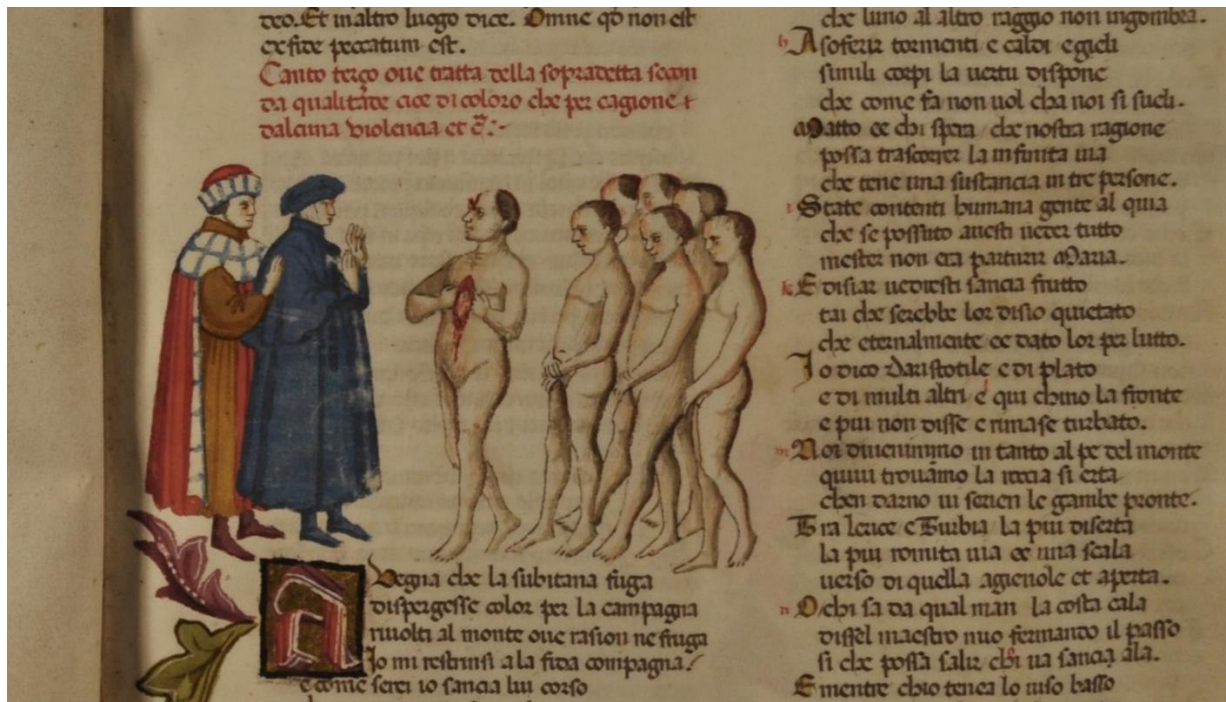 deo. Et in altro luogo dice. Omne qd non est
ex fide peccatum est.
Canto terço oue tratta della sopradetta secon
da qualitade cioe di coloro che per cagione
dalcuna violencia et c̃.
Avegna che la subitana fuga
dispergesse color per la campagna
riuolti al monte oue rasion ne fruga
Io mi restrinsi a la fida compagna
e come serei io sancia lui corso
che luno al altro raggio non ingombra.
A soferir tormenti e caldi e gieli
simili corpi la uertu dispone
che come fa non uol cha noi si sueli.
Matto ee chi spera che nostra ragione
possa trascorrer la infinita uia
che tene una sustancia in tre persone.
State contenti humana gente al quia
che se possuto auesti ueder tutto
mester non era parturir Maria.
E disiar uedesti sancia frutto
tai che serebbe lor disio quietato
che eternalmente ee dato lor per lutto.
Io dico daristotile e di plato
e di multi altri e qui chino la fronte
e piu non disse e rimase turbato.
Noi diuenimmo in tanto al pe del monte
quiui trouamo la roccia si erta
chen darno ui serien le gambe pronte.
Tra lerice e Turbia la piu diserta
la piu romita uia ee una scala
uerso di quella agieuole et aperta.
Or chi sa da qual man la costa cala
dissel maestro mio fermando il passo
si che possa salir chi ua sancia ala.
E mentre chio tenea lo uiso basso